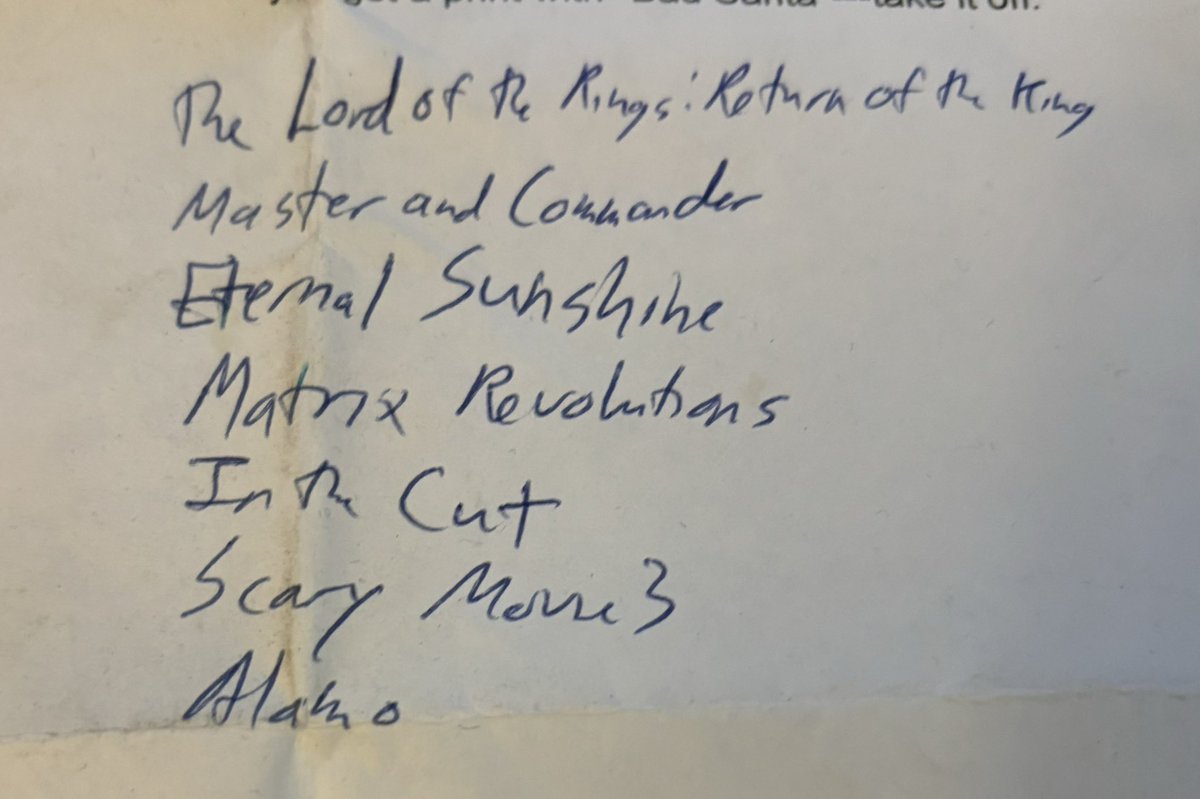 get a print with "Bad Santa"—take it off.
The Lord of the Rings: Return of the King
Master and Commander
Eternal Sunshine
Matrix Revolutions
In the Cut
Scary Movie 3
Alamo